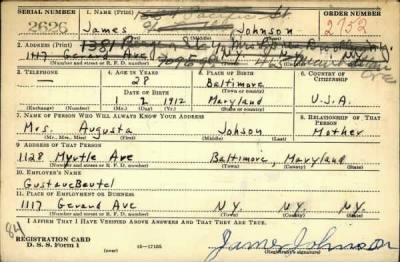 SERIAL NUMBER 1. NAME (Print) ORDER NUMBER
2626 James Johnson 2752
(First) (Middle) (Last)
2. ADDRESS (Print)
1117 Gerard Ave N.Y. N.Y. N.Y.
(Number and street or R. F. D. number) (Town) (County) (State)
3. TELEPHONE 4. AGE IN YEARS 5. PLACE OF BIRTH 6. COUNTRY OF CITIZENSHIP
28 Baltimore
DATE OF BIRTH (Town or county)
2 1912 Maryland U.S.A
(Exchange) (Number) (Mo.) (Day) (Yr.) (State or country)
7. NAME OF PERSON WHO WILL ALWAYS KNOW YOUR ADDRESS 8. RELATIONSHIP OF THAT PERSON
Mrs. Augusta Johson Mother
(Mr., Mrs., Miss) (First) (Middle) (Last)
9. ADDRESS OF THAT PERSON
1128 Myrtle Ave Baltimore, Maryland
(Number and street or R. F. D. number) (Town) (County) (State)
10. EMPLOYER'S NAME
Gustave Beutel
11. PLACE OF EMPLOYMENT OR BUSINESS
1117 Gerard Ave N.Y. N.Y.
(Number and street or R. F. D. number) (Town) (County) (State)
I AFFIRM THAT I HAVE VERIFIED ABOVE ANSWERS AND THAT THEY ARE TRUE.
84
REGISTRATION CARD
D. S. S. Form 1 (over) 16—17105 James Johnson
(Registrant's signature)